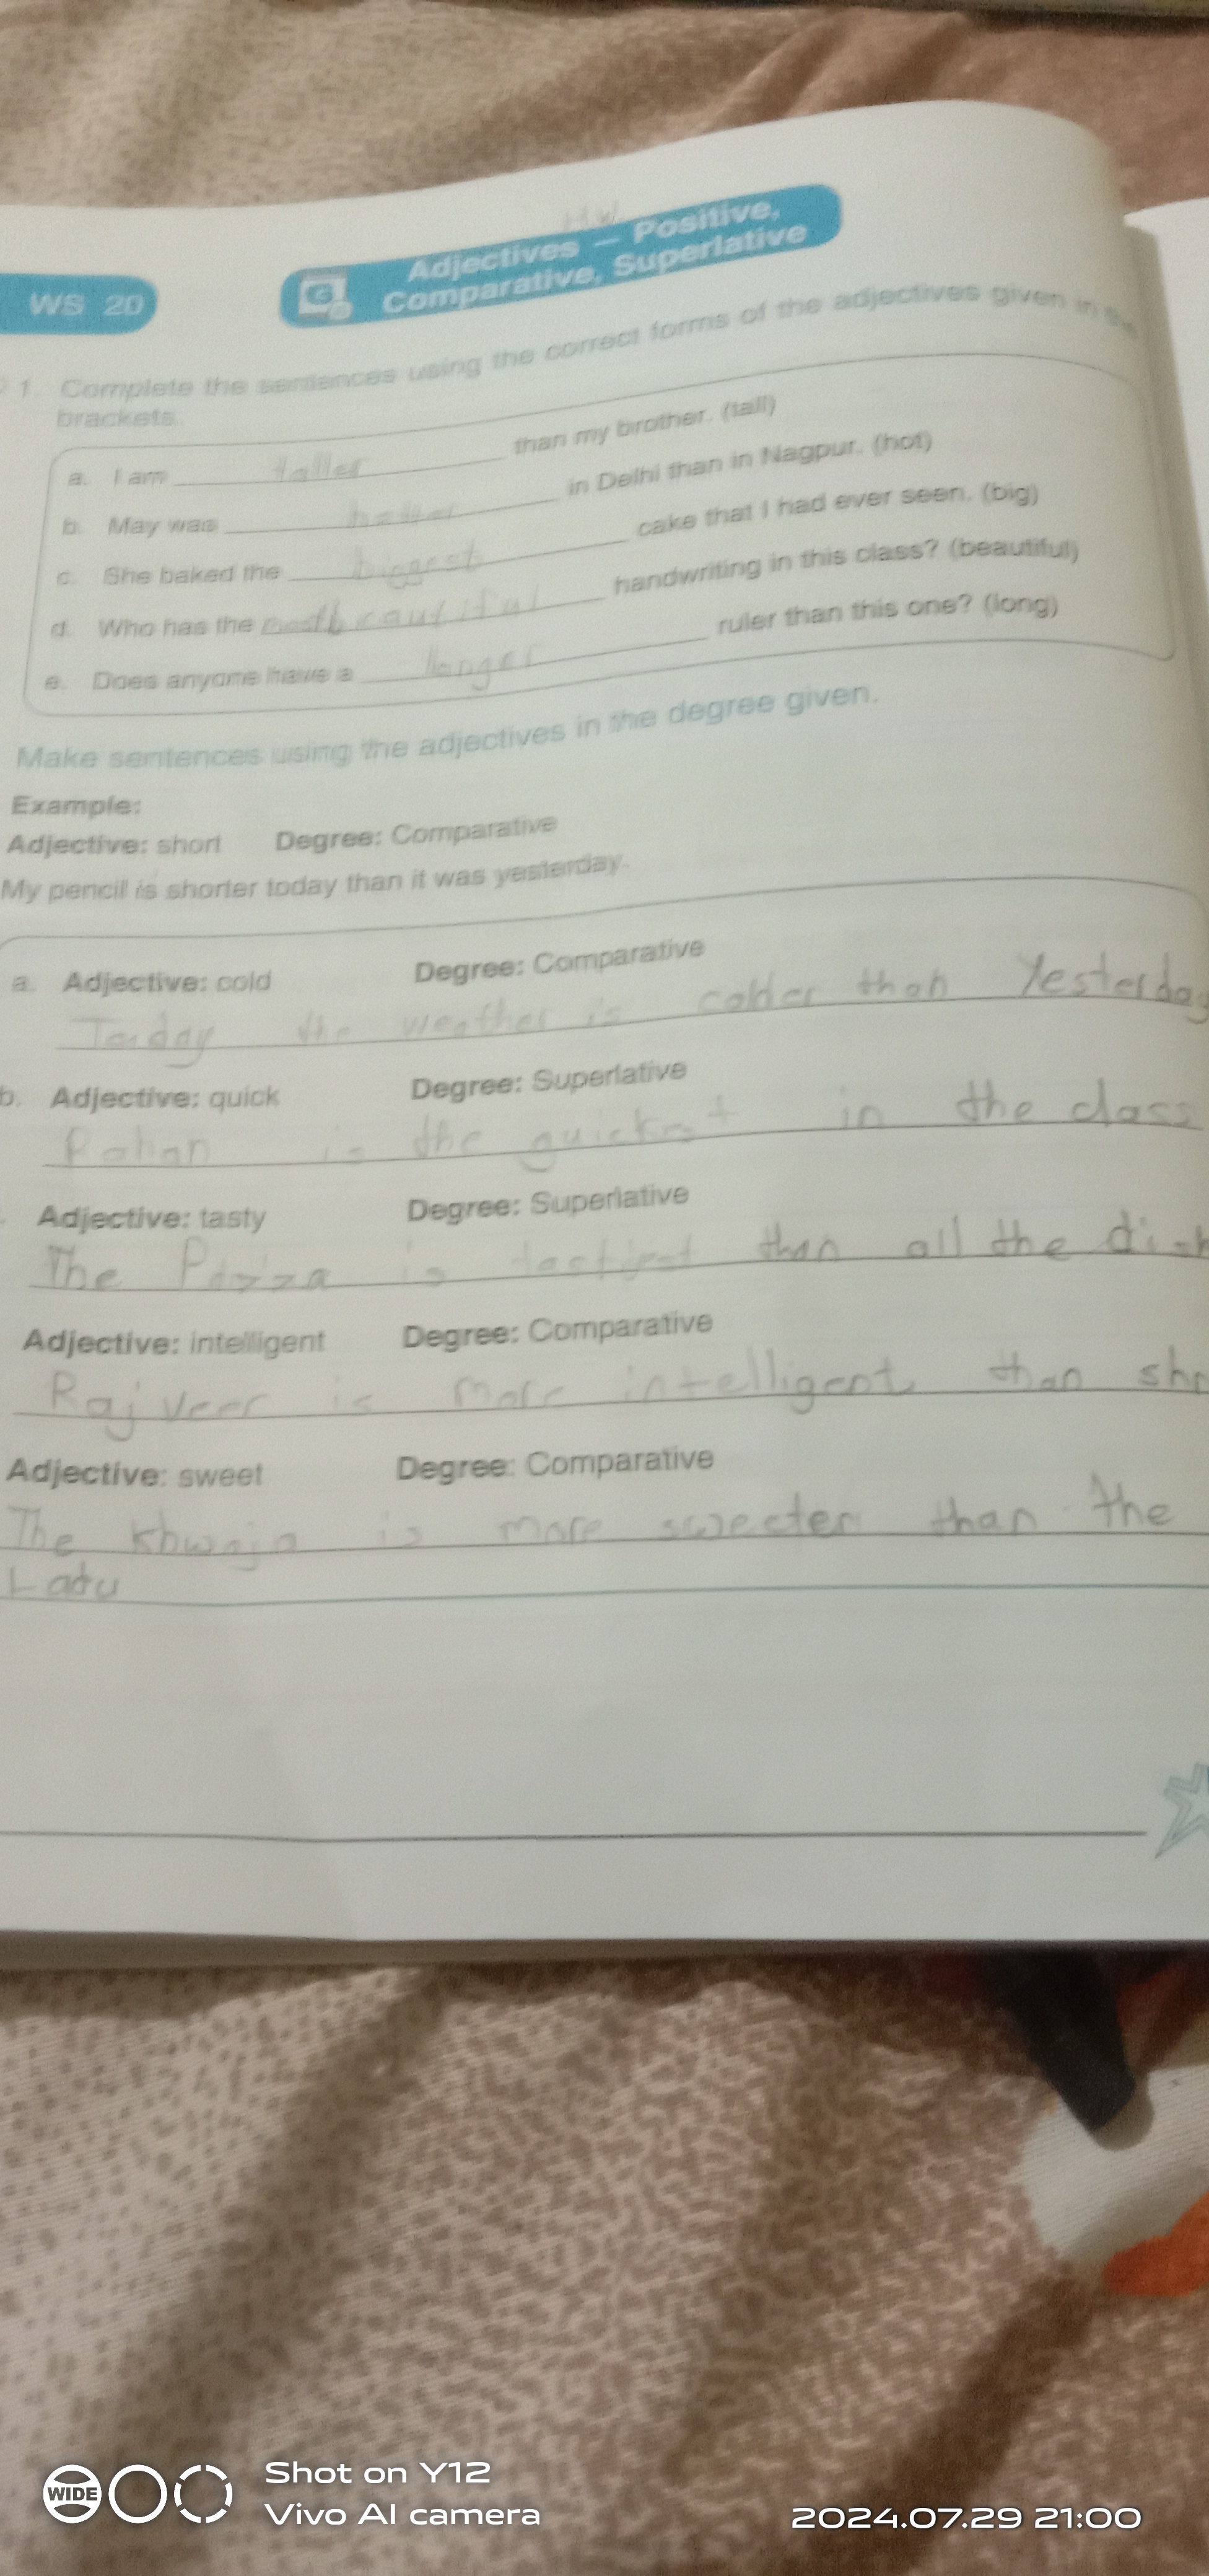 HW
WS 20
Adjectives — Positive,
Comparative, Superlative
1. Complete the sentences using the correct forms of the adjectives given in
brackets.
a. I am taller than my brother. (tall)
b. May was hotter in Delhi than in Nagpur. (hot)
c. She baked the biggest cake that I had ever seen. (big)
d. Who has the most beautiful handwriting in this class? (beautiful)
e. Does anyone have a longer ruler than this one? (long)
Make sentences using the adjectives in the degree given.
Example:
Adjective: short Degree: Comparative
My pencil is shorter today than it was yesterday.
a. Adjective: cold Degree: Comparative
the weather is colder than Yesterday
b. Adjective: quick Degree: Superlative
is the quickest in the class
Adjective: tasty Degree: Superlative
The is than all the
Adjective: intelligent Degree: Comparative
Rajveer is more intelligent than
Adjective: sweet Degree: Comparative
The is more sweeter than the
Ladu
WIDE
Shot on Y12
Vivo AI camera
2024.07.29 21:00